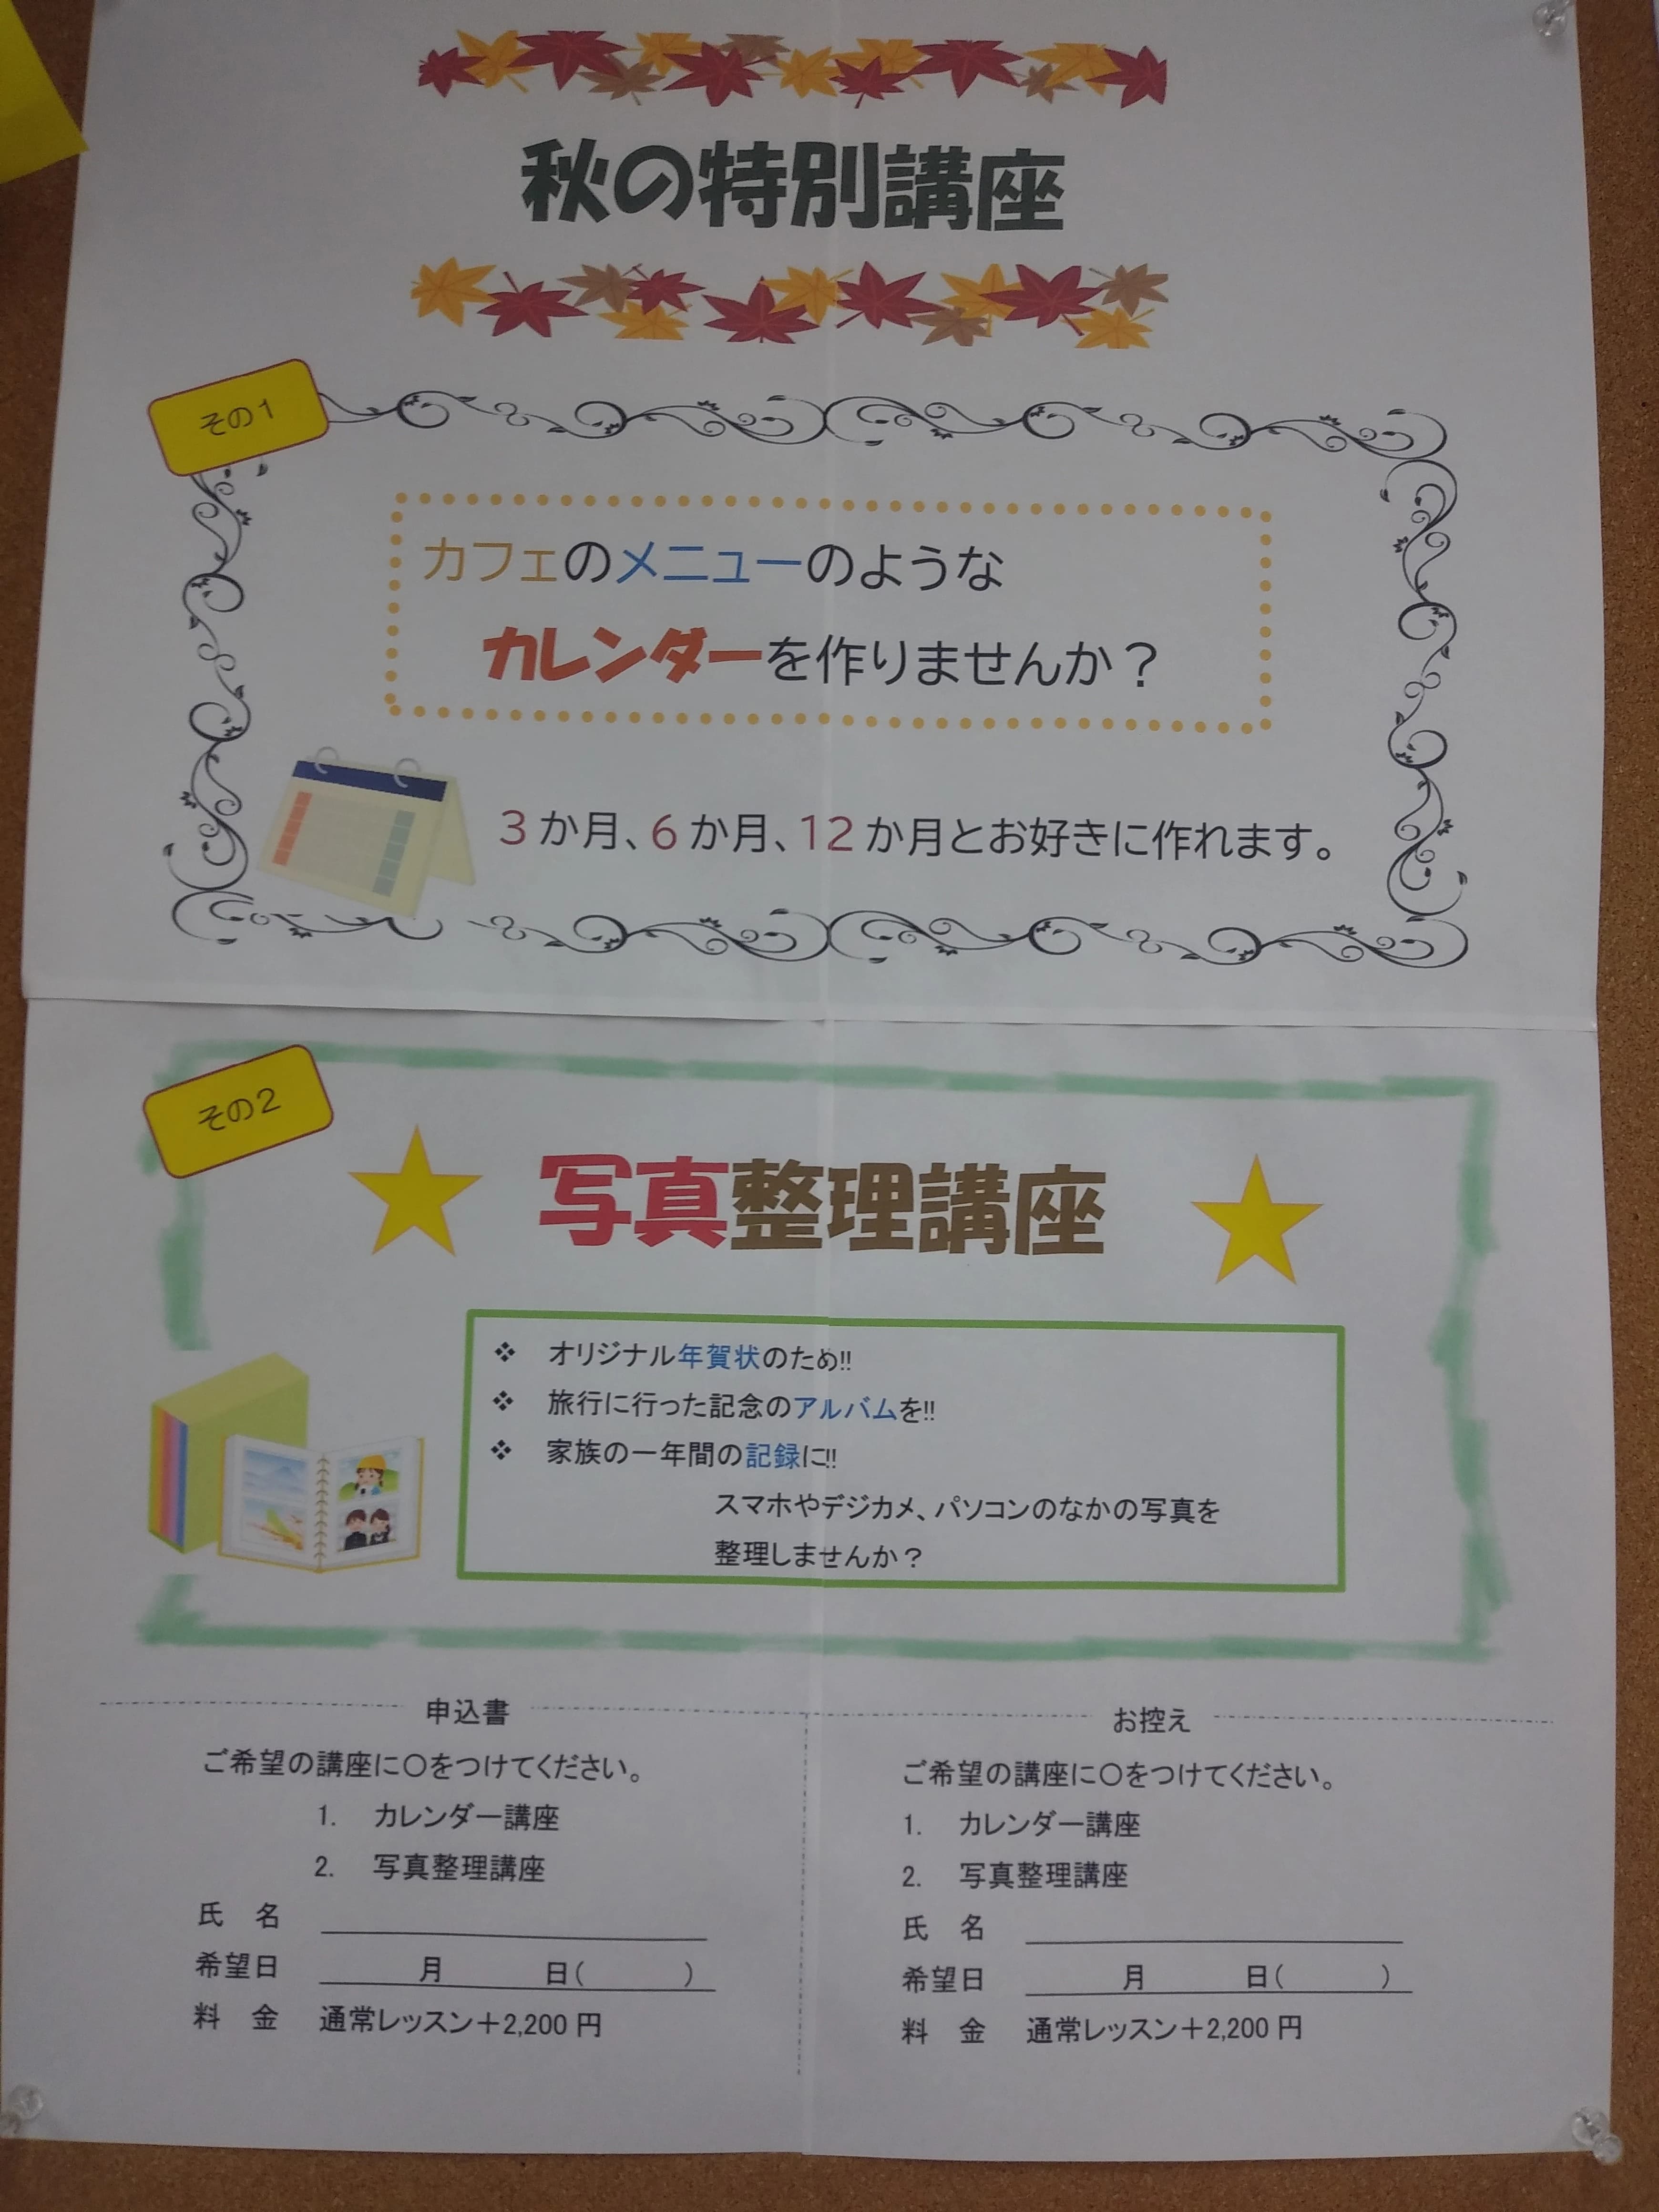 秋の特別講座
その1
カフェのメニューのような
カレンダーを作りませんか？
3か月、6か月、12か月とお好きに作れます。
その2
写真整理講座
❖ オリジナル年賀状のため!!
❖ 旅行に行った記念のアルバムを!!
❖ 家族の一年間の記録に!!
スマホやデジカメ、パソコンのなかの写真を
整理しませんか？
申込書
ご希望の講座に〇をつけてください。
1. カレンダー講座
2. 写真整理講座
氏　名
希望日　月　日(　)
料　金　通常レッスン＋2,200円
お控え
ご希望の講座に〇をつけてください。
1. カレンダー講座
2. 写真整理講座
氏　名
希望日　月　日(　)
料　金　通常レッスン＋2,200円